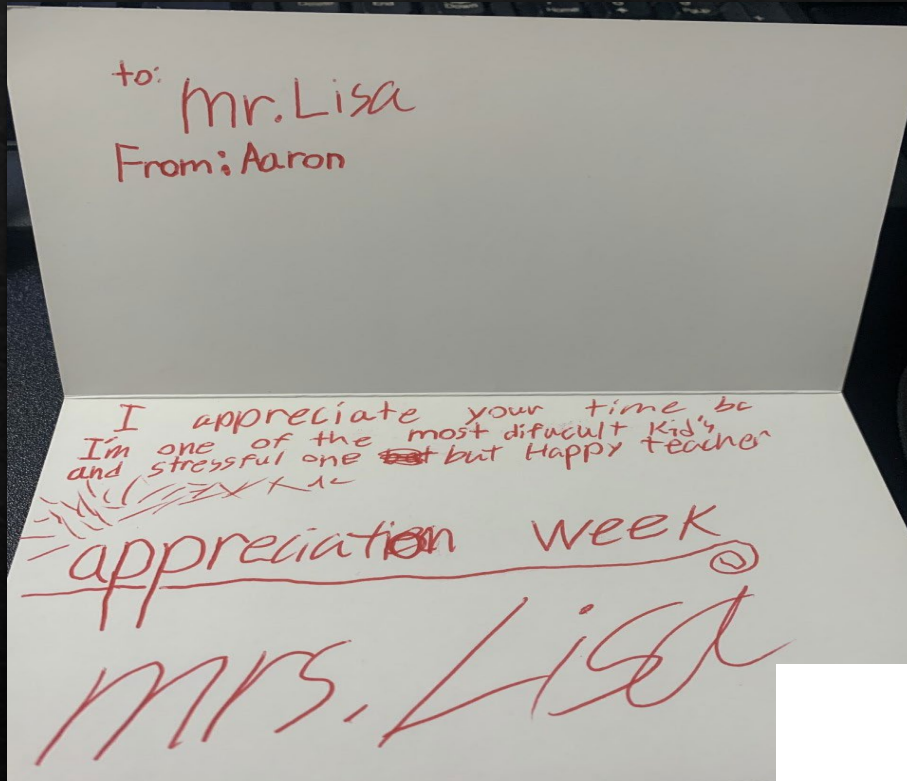 to:
Mr. Lisa
From: Aaron
I appreciate your time bc
I'm one of the most difucult Kid's
and stressful one but Happy teacher
appreciation week
mrs. Lisa